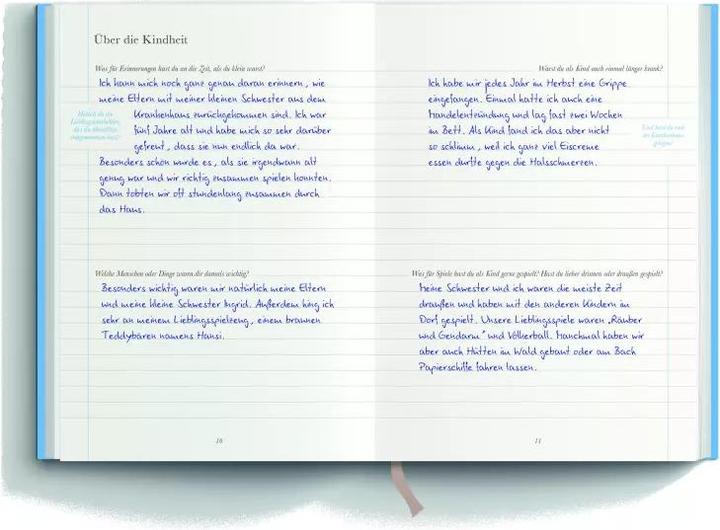 Über die Kindheit
Was für Erinnerungen hast du an die Zeit, als du klein warst?
Ich kann mich noch ganz genau daran erinnern, wie
meine Eltern mit meiner kleinen Schwester aus dem
Krankenhaus zurückgekommen sind. Ich war
fünf Jahre alt und habe mich so sehr darüber
gefreut, dass sie nun endlich da war.
Besonders schön wurde es, als sie irgendwann alt
genug war und wir richtig zusammen spielen konnten.
Dann tobten wir oft stundenlang zusammen durch
das Haus.
Welche Menschen oder Dinge waren dir damals wichtig?
Besonders wichtig waren mir natürlich meine Eltern
und meine kleine Schwester Ingrid. Außerdem hing ich
sehr an meinem Lieblingsspielzeug, einem braunen
Teddybären namens Hansi.
10
Warst du als Kind auch einmal länger krank?
Ich habe mir jedes Jahr im Herbst eine Grippe
eingefangen. Einmal hatte ich auch eine
Mandelentzündung und lag fast zwei Wochen
im Bett. Als Kind fand ich das aber nicht
so schlimm, weil ich ganz viel Eiscreme
essen durfte gegen die Halsschmerzen.
Was für Spiele hast du als Kind gerne gespielt? Hast du lieber drinnen oder draußen gespielt?
Meine Schwester und ich waren die meiste Zeit
draußen und haben mit den anderen Kindern im
Dorf gespielt. Unsere Lieblingsspiele waren „Räuber
und Gendarm" und Völkerball. Manchmal haben wir
aber auch Hütten im Wald gebaut oder am Bach
Papierschiffe fahren lassen.
11